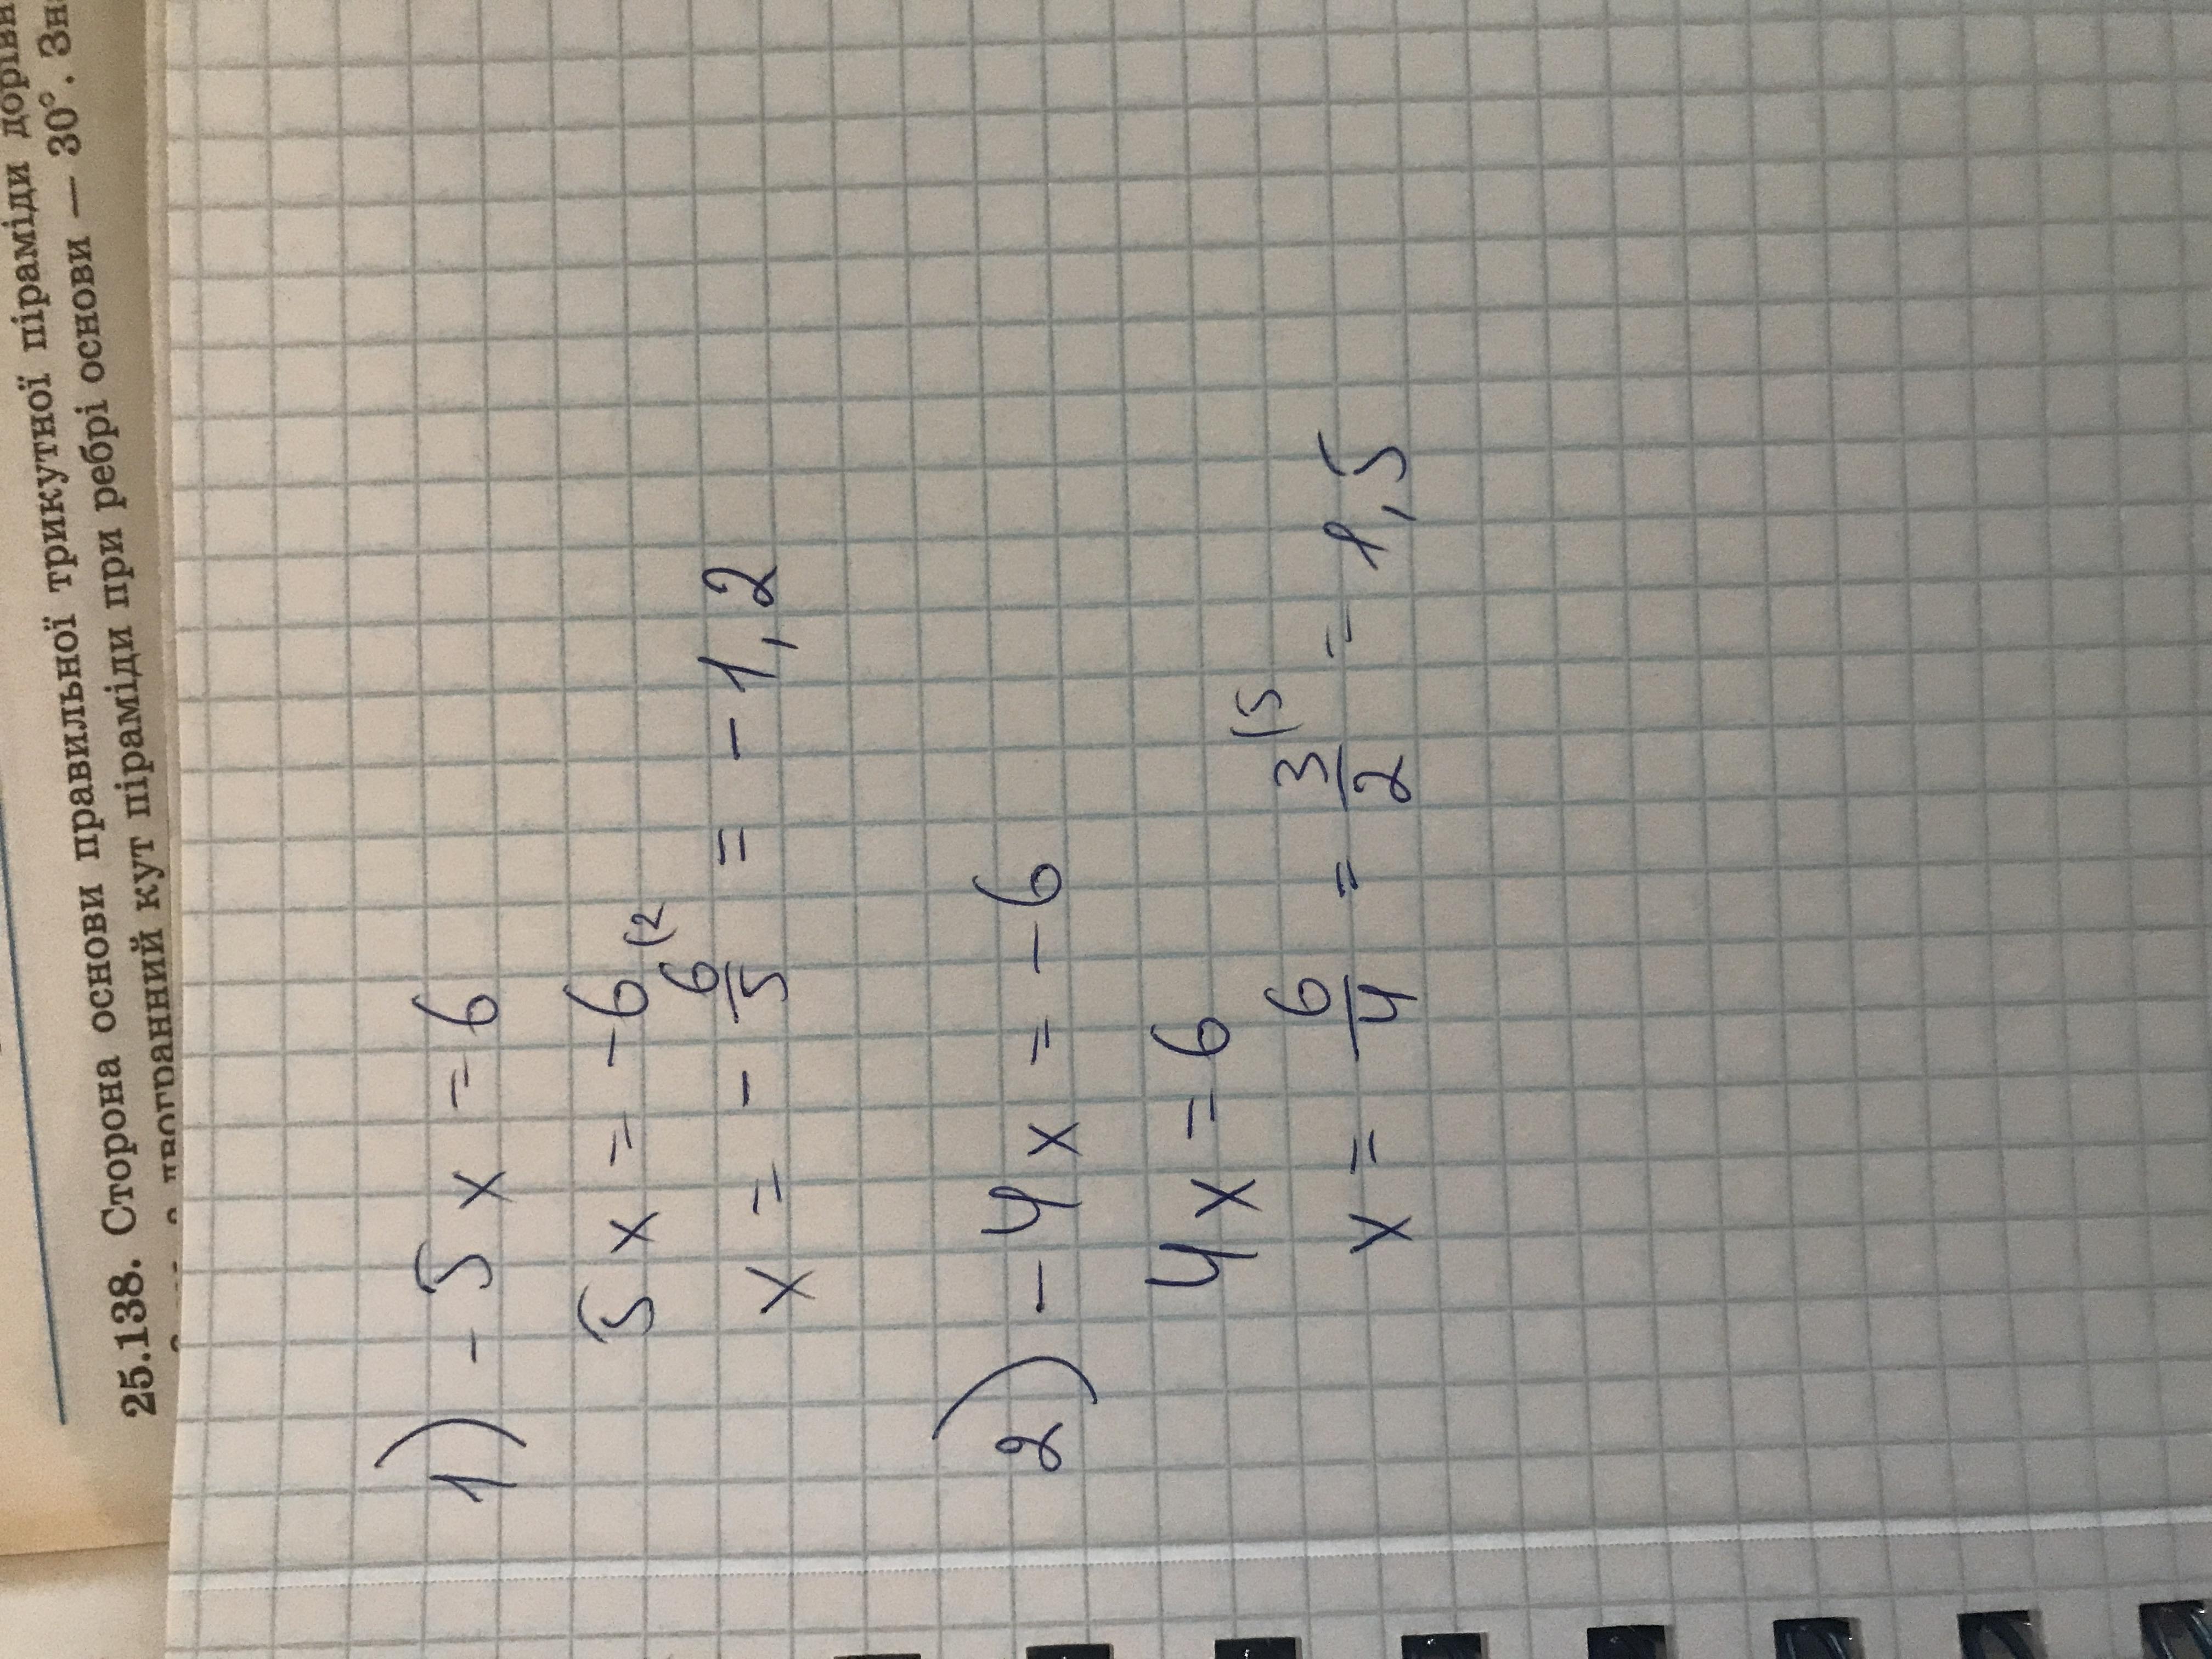 дорівн
25.138. Сторона основи правильної трикутної піраміди
двогранний кут піраміди при ребрі основи — 30°. Зн
1) - 5 x = 6
5 x = - 6
x = - 6/5 (2 = - 1,2
2) - 4 x = - 6
4 x = 6
x = 6/4 = 3/2 (5 = 1,5